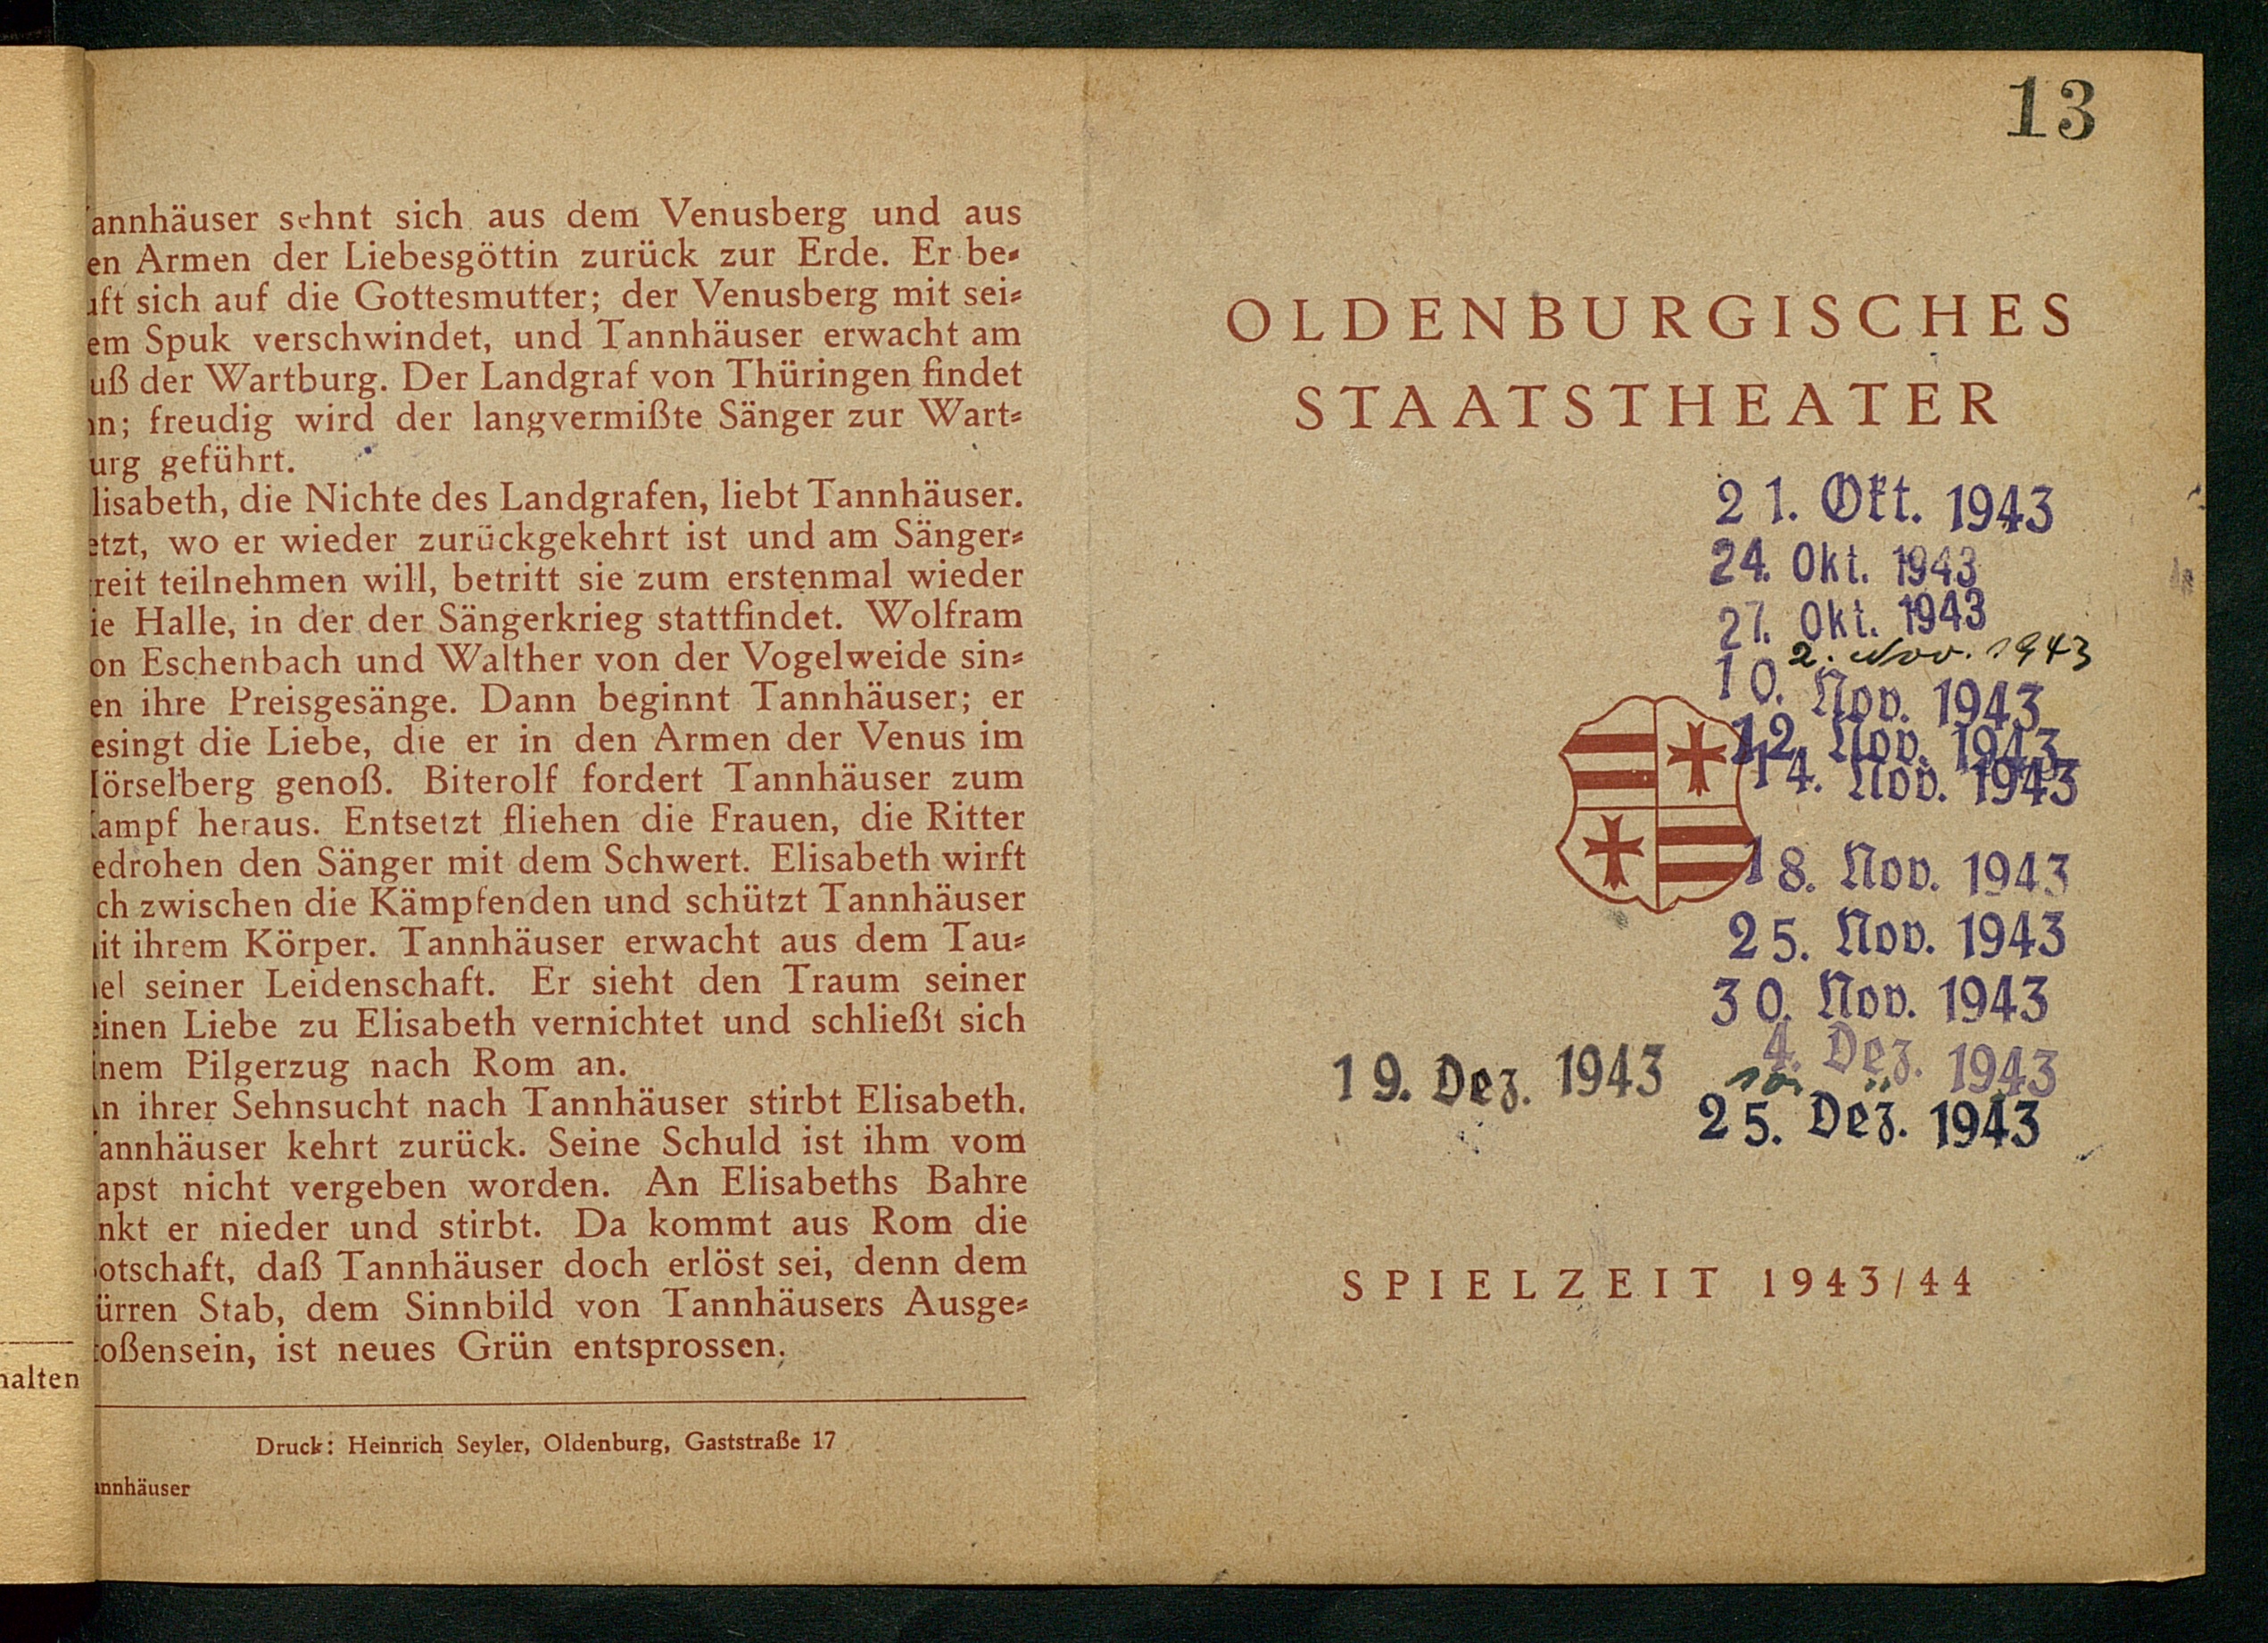 annhäuser sehnt sich aus dem Venusberg und aus
en Armen der Liebesgöttin zurück zur Erde. Er be-
uft sich auf die Gottesmutter; der Venusberg mit sei-
em Spuk verschwindet, und Tannhäuser erwacht am
uß der Wartburg. Der Landgraf von Thüringen findet
hn; freudig wird der langvermißte Sänger zur Wart-
urg geführt.
lisabeth, die Nichte des Landgrafen, liebt Tannhäuser.
etzt, wo er wieder zurückgekehrt ist und am Sänger-
reit teilnehmen will, betritt sie zum erstenmal wieder
ie Halle, in der der Sängerkrieg stattfindet. Wolfram
on Eschenbach und Walther von der Vogelweide sin-
en ihre Preisgesänge. Dann beginnt Tannhäuser; er
esingt die Liebe, die er in den Armen der Venus im
Hörselberg genoß. Biterolf fordert Tannhäuser zum
Kampf heraus. Entsetzt fliehen die Frauen, die Ritter
edrohen den Sänger mit dem Schwert. Elisabeth wirft
ch zwischen die Kämpfenden und schützt Tannhäuser
it ihrem Körper. Tannhäuser erwacht aus dem Tau-
el seiner Leidenschaft. Er sieht den Traum seiner
einen Liebe zu Elisabeth vernichtet und schließt sich
inem Pilgerzug nach Rom an.
In ihrer Sehnsucht nach Tannhäuser stirbt Elisabeth.
annhäuser kehrt zurück. Seine Schuld ist ihm vom
apst nicht vergeben worden. An Elisabeths Bahre
nkt er nieder und stirbt. Da kommt aus Rom die
otschaft, daß Tannhäuser doch erlöst sei, denn dem
ürren Stab, dem Sinnbild von Tannhäusers Ausge-
oßensein, ist neues Grün entsprossen.
halten
Druck: Heinrich Seyler, Oldenburg, Gaststraße 17
annhäuser
13
OLDENBURGISCHES
STAATSTHEATER
21. Okt. 1943
24. Okt. 1943
27. Okt. 1943
2. Nov. 1943
10. Nov. 1943
12. Nov. 1943
14. Nov. 1943
18. Nov. 1943
25. Nov. 1943
30. Nov. 1943
4. Dez. 1943
19. Dez. 1943
25. Dez. 1943
SPIELZEIT 1943/44